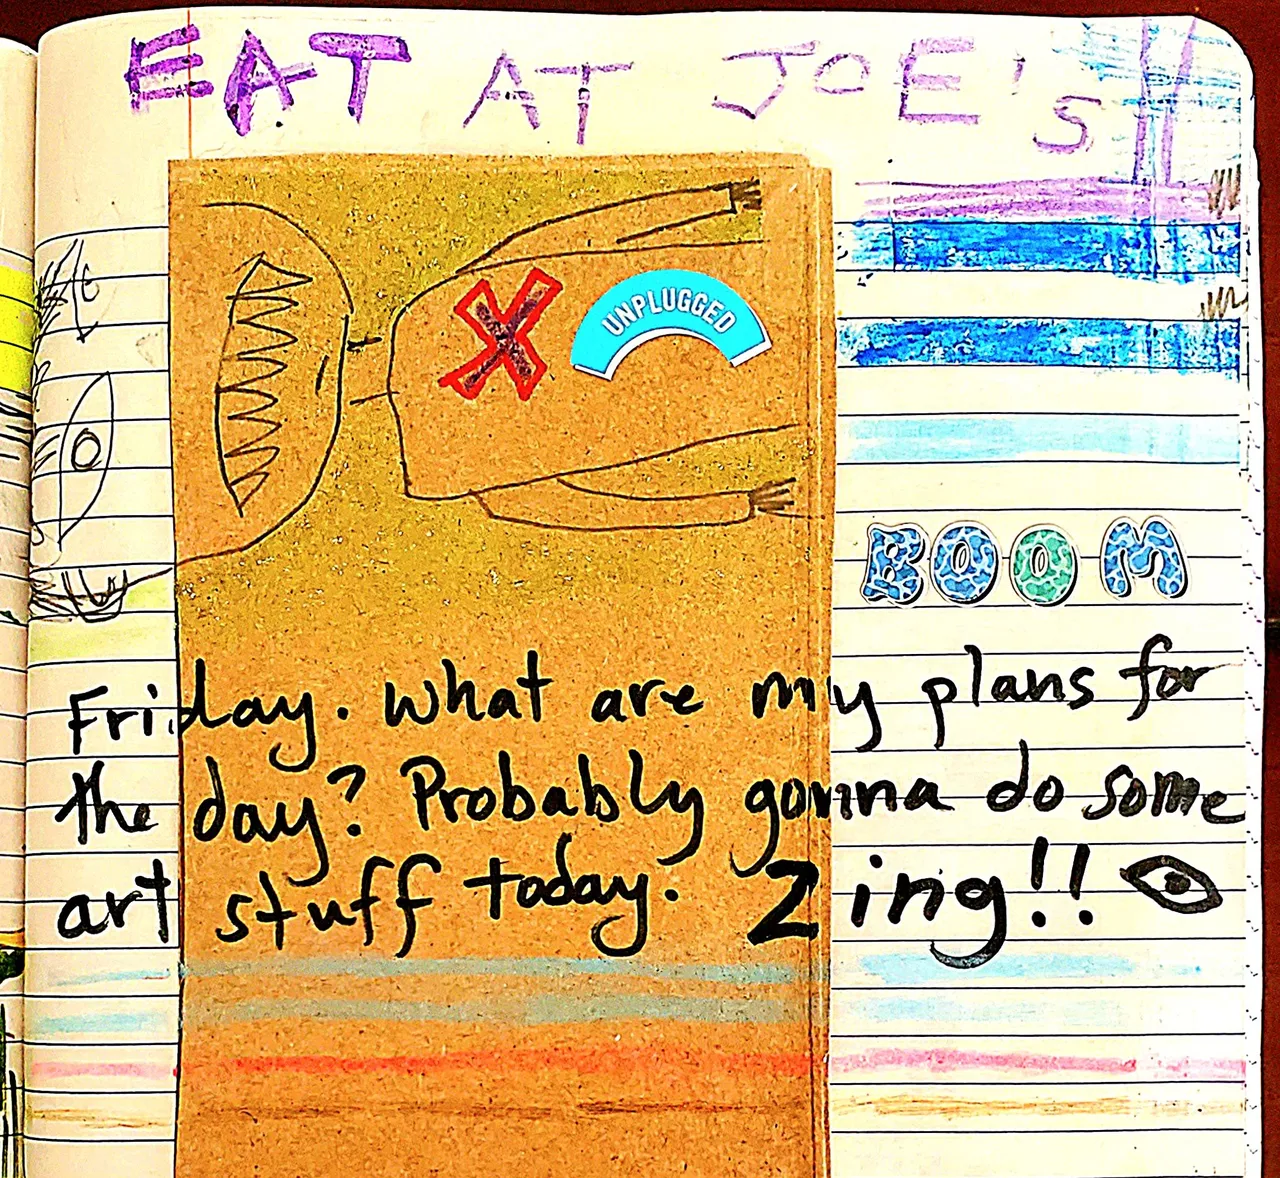 EAT AT JOE'S
UNPLUGGED
BOOM
Friday. What are my plans for
the day? Probably gonna do some
art stuff today. Zing!!